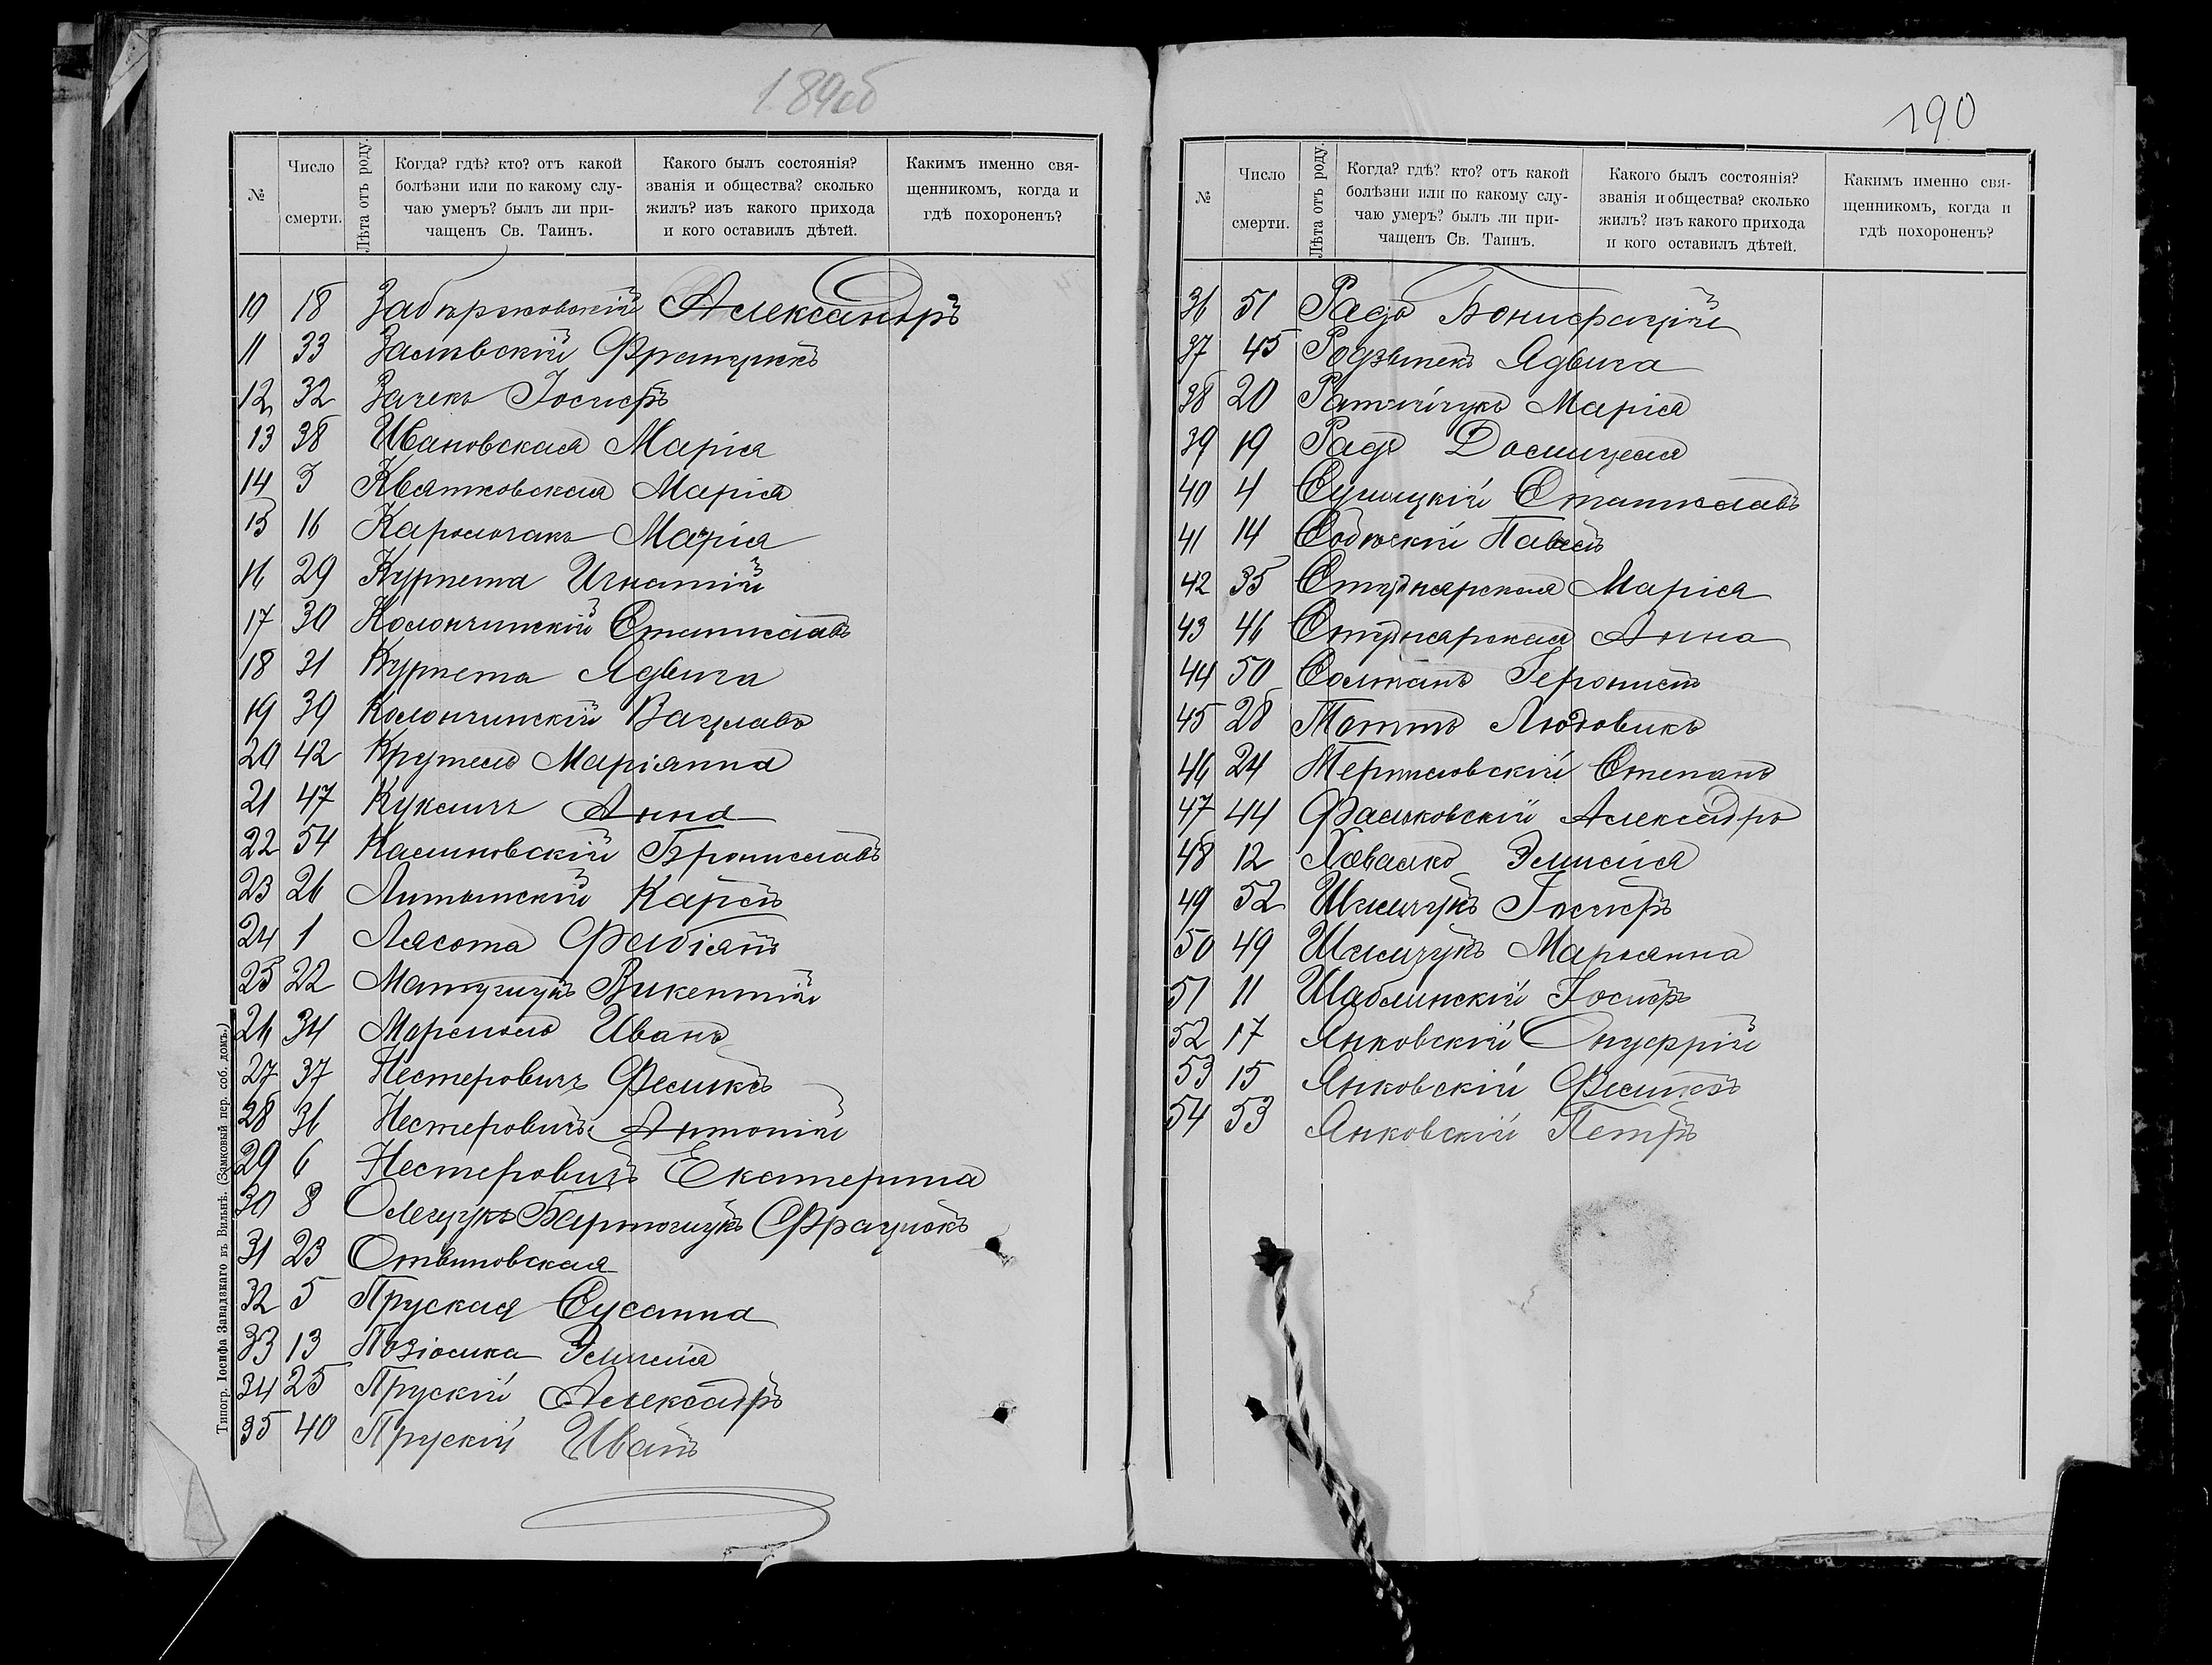 189об
№
Число
смерти.
Лѣта отъ роду.
Когда? гдѣ? кто? отъ какой
болѣзни или по какому слу-
чаю умеръ? былъ ли при-
чащенъ Св. Таинъ.
Какого былъ состоянія?
званія и общества? сколько
жилъ? изъ какого прихода
и кого оставилъ дѣтей.
Какимъ именно свя-
щенникомъ, когда и
гдѣ похороненъ?
10 18 Александръ
11 33 Залѣвскій
12 32 Зачекъ Іосифъ
13 38 Ивановская Марія
14 3 Квятковская Марія
15 16 Марія
16 29 Курпета Игнатій
17 30 Колончинскій Станиславъ
18 31 Курпета Ядвига
19 39 Колончинскій Вацлавъ
20 42 Крутель Маріянна
21 47 Анна
22 54 Калиновскій Брониславъ
23 26 Литынскій Карлъ
24 1 Лясота Фабіянъ
25 22 Викентій
26 34 Иванъ
27 37 Нестеровичъ Феликсъ
28 36 Нестеровичъ Антоній
29 6 Нестеровичъ Екатерина
30 8 Олещукъ Бартощукъ
31 23 Отвиновская
32 5 Пруская Сусанна
33 13 Эмилія
34 25 Прускій Александръ
35 40 Прускій Иванъ
Типогр. Іосифа Завадзкаго въ Вильнѣ. (Замковый пер. соб. домъ.)
190
№
Число
смерти.
Лѣта отъ роду.
Когда? гдѣ? кто? отъ какой
болѣзни или по какому слу-
чаю умеръ? былъ ли при-
чащенъ Св. Таинъ.
Какого былъ состоянія?
званія и общества? сколько
жилъ? изъ какого прихода
и кого оставилъ дѣтей.
Какимъ именно свя-
щенникомъ, когда и
гдѣ похороненъ?
36 51 Радо Бонифацій
37 45 Ядвига
38 20 Марія
39 19 Радо
40 4 Станиславъ
41 14 Павелъ
42 35 Студнярская Марія
43 46 Студнярская Анна
44 50 Солтанъ Геронимъ
45 28 Людовикъ
46 24 Степанъ
47 44 Фальковскій Александръ
48 12 Эмилія
49 52 Іосифъ
50 49 Марьянна
51 11 Шаблинскій Іосифъ
52 17 Янковскій Онуфрій
53 15 Янковскій Феликсъ
54 53 Янковскій Петръ